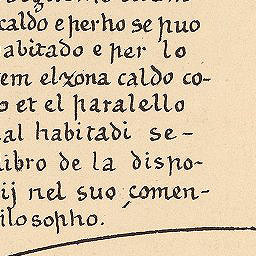 caldo e perho se puo
abitado e per lo
em el zona caldo co-
o et el paralello
al habitadi se-
libro de la dispo-
ij nel suo comen-
ilosopho.